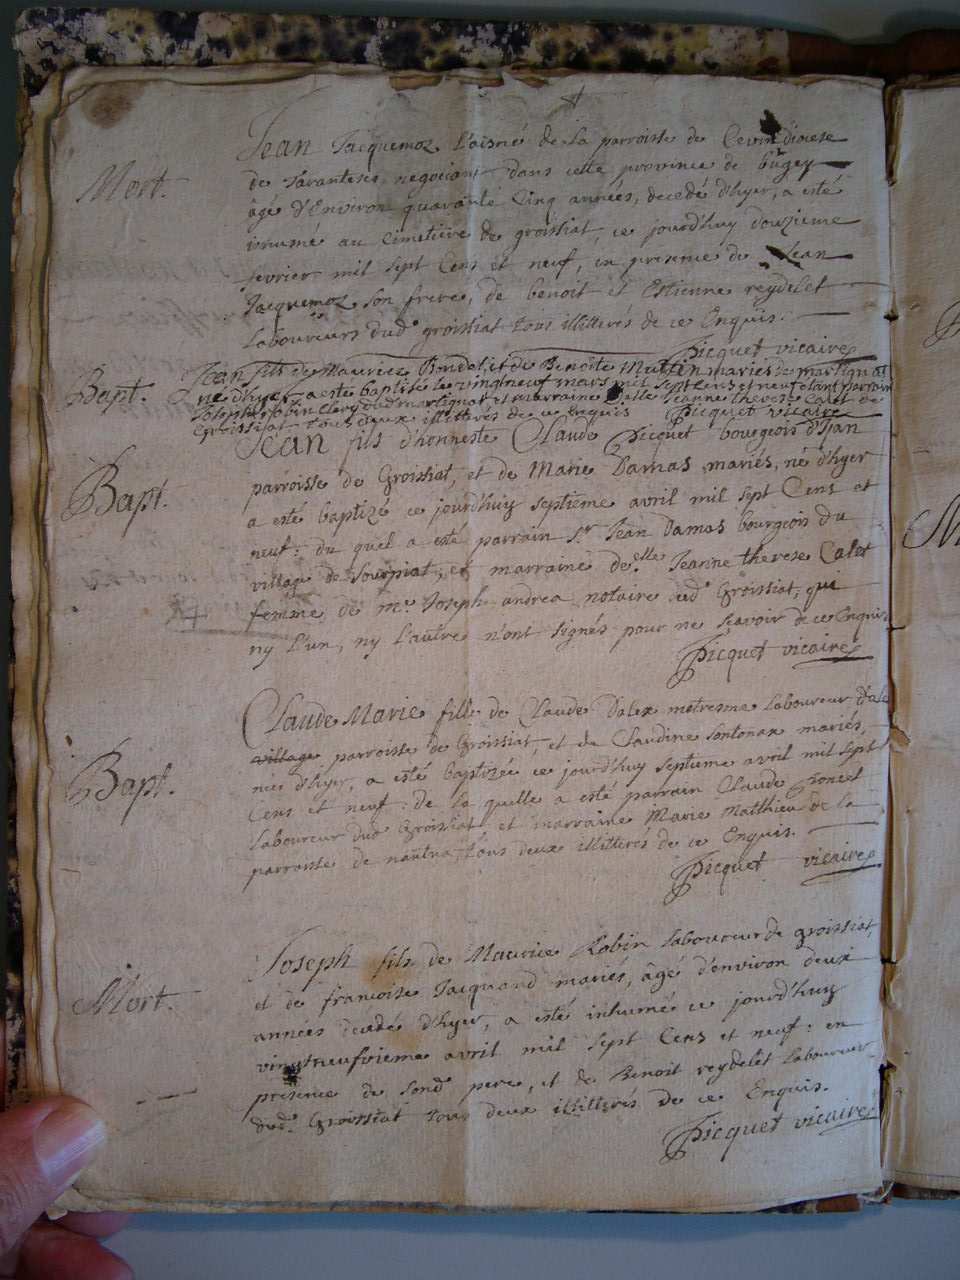 Mort.
Jean Jacquemoz l'aisné de la parroisse de Cevin diocese
de tarantese, negociant dans cette province de bugey
âgé d'Environ quarante Cinq années, decedé d'hyer, a esté
inhumé au Cimetière de groissiat, ce jourd'huy douzieme
fevrier mil sept Cens et neuf, en presence de Jean
Jacquemoz son frere, de benoit et Estienne reydelet
Laboureurs dud. groissiat tous illitterés de ce Enquis.
Picquet vicaire
Bapt.
Jean fils de Maurice Bondet, et de Benoîte Muttin mariés de martignat
né d'hyer, a esté baptisé le vingt neuf mars mil sept cens et neuf etant parrain
Joseph Robin clerc dud martignat et marraine delle Jeanne therese Calet de
Groissiat tous deux illitterés de ce enquis Picquet vicaire
Bapt.
Jean fils d'honneste Claude Picquet bourgeois d'Ijan
parroisse de Groissiat, et de Marie Damas mariés, né d'hyer
a esté baptizé ce jourd'huy septieme avril mil sept Cens et
neuf: du quel a esté parrain Sr. Jean Damas bourgeois du
village de Sourpiat, et marraine de.lle Jeanne therese Calet
femme de me. Joseph andrea notaire dud. Groissiat, qui
ny l'un, ny l'autre n'ont signés pour ne sçavoir de ce Enquis
Picquet vicaire
Bapt.
Claude Marie fille de Claude Dalex metresma Laboureur
village parroisse de Groissiat, et de Claudine Sontonax mariés,
née d'hyer, a esté baptizée ce jourd'huy septieme avril mil sept
Cens et neuf: de la quelle a esté parrain Claude Poncet
Laboureur dud Groissiat et marraine Marie Matthieu de la
parroisse de nantua, tous deux illitterés de ce Enquis.
Picquet vicaire
Mort.
Joseph fils de Maurice Robin laboureur de groissiat,
et de francoise Jacquand mariés, âgé d'environ deux
années decedé d'hyer, a esté inhumé ce jourd'huy
vingtneufvieme avril mil sept Cens et neuf: en
presence de sond. pere, et de Benoit reydelet laboureur
dud. Groissiat tous deux illitterés de ce Enquis.
Picquet vicaire